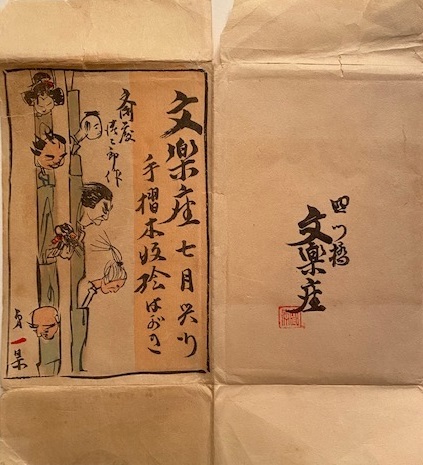 文楽座七月興行
手摺木版絵はがき
斎藤清二郎作
第一集
四ツ橋
文楽座